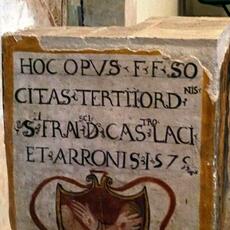 HOC OPVS · F · F · SO
CITAS · TERTII ORD NIS
·S· FRA·D· CAS TRO LACI
ET ARRONIS · 1575